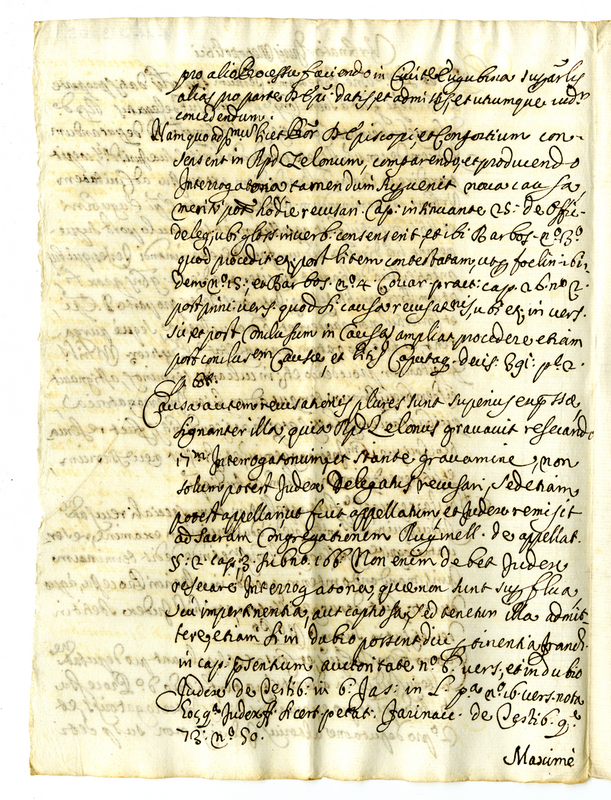 pro alio Processu faciendo in Civit.e Eugubina super lis
alias pro parte D. Epi: datis, et admissis, et utrumque iud.m
concedendum.
Nam quo ad p.mum licet D. Episcopi, et Consortium con-
sensent in Rpd Zelonum, comparendo, et producendo
Interrogatoria tamen dum supvenit nova causa
meriti pot hodie recusari. Cap: insinuante 25: de Offi:
deleg, ubi gloss. in verb. consenserit, et ibi Barbos. n.o 3.o
quod procedit et post litem contestatam, ut p foelin. ibi-
dem n.o 15: et Barbos. n.o 4. Covar pract: cap. 26. n.o 2.
post prin: vers. quod si causa recusat.nis, ubi et in vers.
sup et post Conclusum in Causa, ampliat procedere etiam
post conclusem Causae, et litis Caputaq. decis. 391: p.e 2.
Causa autem recusationis plures sunt superius expssae,
signanter illa, quia Rpd Zelonus gravavit resecando
17.m Interrogatorium, et stante gravamine, non
solum potest Judex Delegatus recusari, sed etiam
potest appellari, ut fuit appellatum, et Judex remisit
ad sacram Congregationem Ruginell. de appellat.
§. 2. cap. 3. sub no. 166 Non enim debet Judex
resecare Interrogatoria, quae non sunt supflua,
seu impertinentia, aut captiosa, sed tenetur illa admit-
tere, etiam si in dubio possent dici ptinentia, franch.
in cap: psentium autoritate n.o 6. vers, et in dubio
Judex de testib. in 6. Jas: in L. p.a n.o 16. vers. nota
hoc q.o Judex ff. si cert petat. Farinacc. de testib. q.e
73: n.o 50.
Maximè